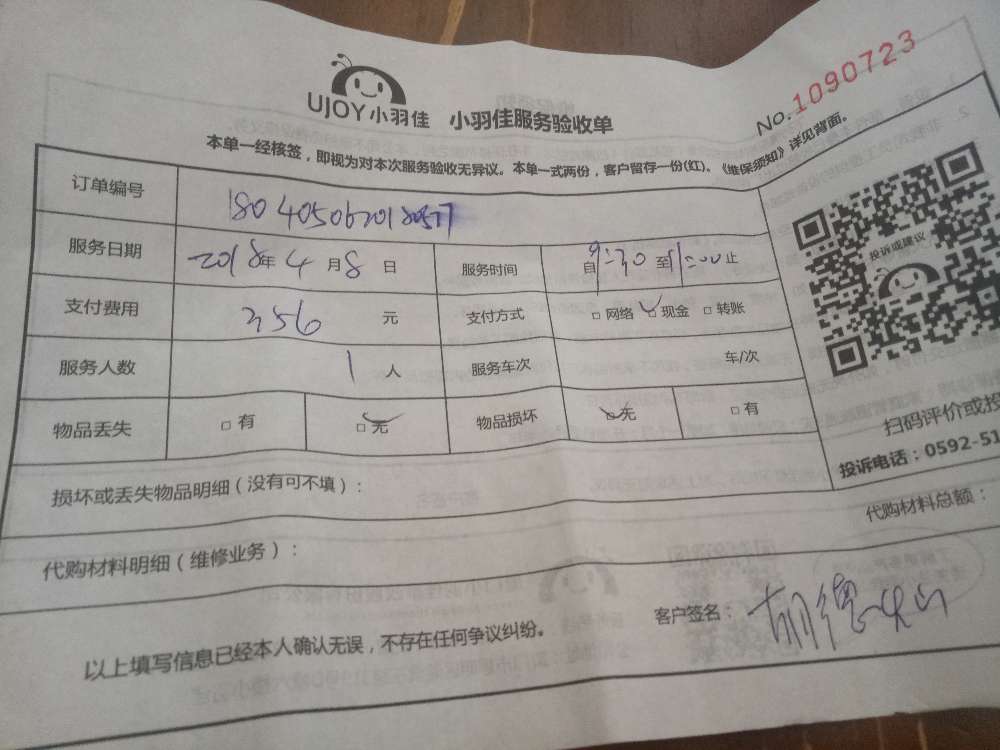 UJOY小羽佳 小羽佳服务验收单
No.1090723
本单一经核签，即视为对本次服务验收无异议。本单一式两份，客户留存一份(红)、《维保须知》详见背面。
订单编号
服务日期 2018年4月8日 服务时间 自9:30至11:00止
支付费用 356 元 支付方式 □网络 □现金 □转账
服务人数 1人 服务车次 车/次
物品丢失 □有 □无 物品损坏 □无 □有
投诉或建议
扫码评价或投
投诉电话：0592-51
损坏或丢失物品明细（没有可不填）：
代购材料明细（维修业务）： 代购材料总额：
以上填写信息已经本人确认无误，不存在任何争议纠纷。 客户签名：